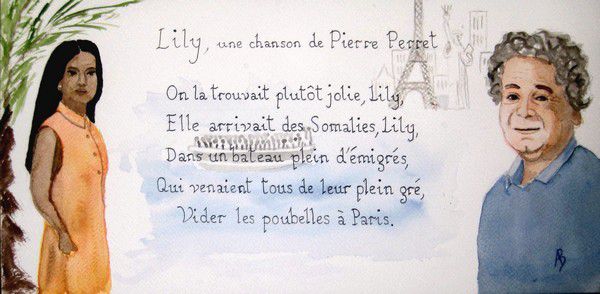 Lily, une chanson de Pierre Perret
On la trouvait plutôt jolie, Lily,
Elle arrivait des Somalies, Lily,
Dans un bateau plein d'émigrés,
Qui venaient tous de leur plein gré,
Vider les poubelles à Paris.